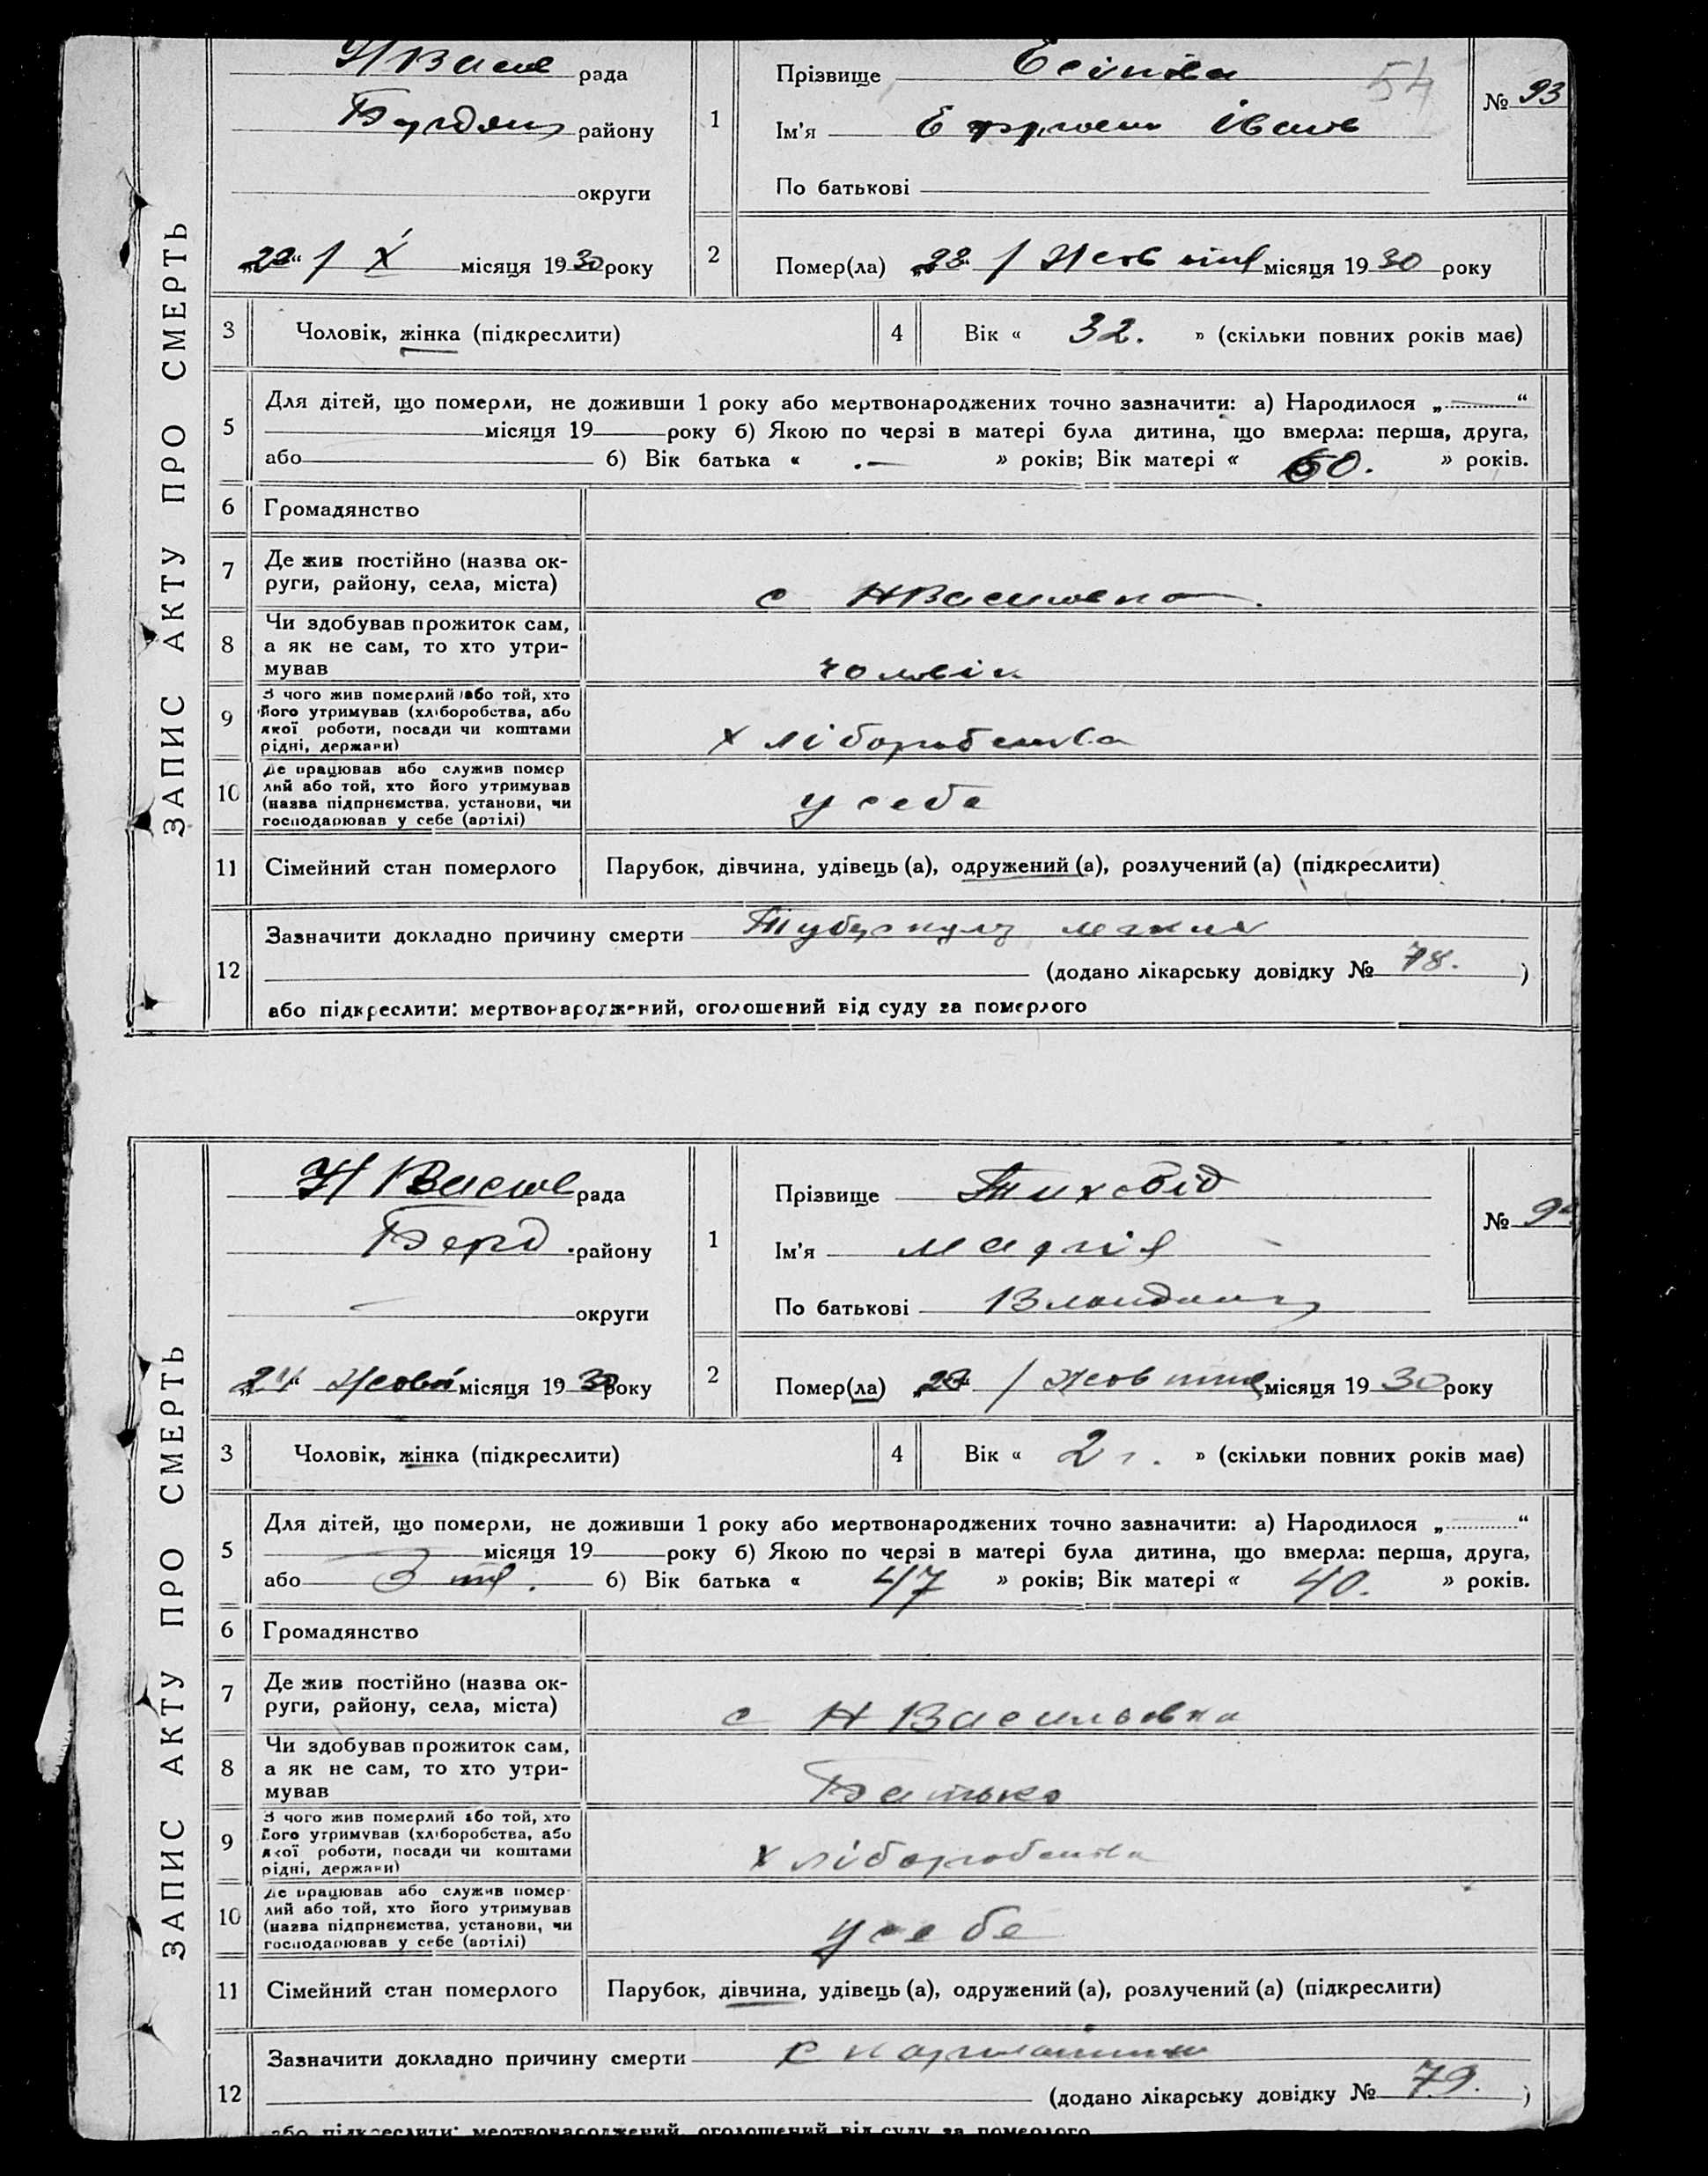 ЗАПИС АКТУ ПРО СМЕРТЬ
Н Васил рада
району
округи
„22“ / X місяця 1930 року
1
Прізвище Есіпова
Ім'я Іванів
По батькові
54
№ 93
2
Помер(ла) / Жовтня місяця 1930 року
3 Чоловік, жінка (підкреслити)
4 Вік « 32. » (скільки повних років має)
5
Для дітей, що померли, не доживши 1 року або мертвонароджених точно зазначити: а) Народилося „ “
місяця 19 року б) Якою по черзі в матері була дитина, що вмерла: перша, друга,
або б) Вік батька « — » років; Вік матері « 60. » років.
6 Громадянство
7 Де жив постійно (назва ок-
руги, району, села, міста)
с НВасиловка
8 Чи здобував прожиток сам,
а як не сам, то хто утри-
мував
чоловік
9 З чого жив померлий або той, хто
його утримував (хліборобства, або
якої роботи, посади чи коштами
рідні, держави)
хліборобства
10 Де працював або служив помер
лий або той, хто його утримував
(назва підприємства, установи, чи
господарював у себе (артілі)
у себе
11 Сімейний стан померлого
Парубок, дівчина, удівець (а), одружений (а), розлучений (а) (підкреслити)
12
Зазначити докладно причину смерти Туберкулз легких
(додано лікарську довідку № 78. )
або підкреслити: мертвонароджений, оголошений від суду за померлого
ЗАПИС АКТУ ПРО СМЕРТЬ
Н Васил рада
Берд. району
округи
„24“ Жовт місяця 1930 року
1
Прізвище Тиховід
Ім'я Марія
По батькові
№
2
Помер(ла) / Жовтня місяця 1930 року
3 Чоловік, жінка (підкреслити)
4 Вік « 2 г. » (скільки повних років має)
5
Для дітей, що померли, не доживши 1 року або мертвонароджених точно зазначити: а) Народилося „ “
місяця 19 року б) Якою по черзі в матері була дитина, що вмерла: перша, друга,
або 3 тя. б) Вік батька « 47 » років; Вік матері « 40. » років.
6 Громадянство
7 Де жив постійно (назва ок-
руги, району, села, міста)
с Н Васильовка
8 Чи здобував прожиток сам,
а як не сам, то хто утри-
мував
Батько
9 З чого жив померлий або той, хто
його утримував (хліборобства, або
якої роботи, посади чи коштами
рідні, держави)
хліборобства
10 Де працював або служив помер-
лий або той, хто його утримував
(назва підприємства, установи, чи
господарював у себе (артілі)
у себе
11 Сімейний стан померлого
Парубок, дівчина, удівець (а), одружений (а), розлучений (а) (підкреслити)
12
Зазначити докладно причину смерти
(додано лікарську довідку № 79. )
або підкреслити: мертвонароджений, оголошений від суду за померлого